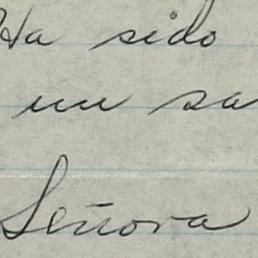 Ha sido
un sa
Señora